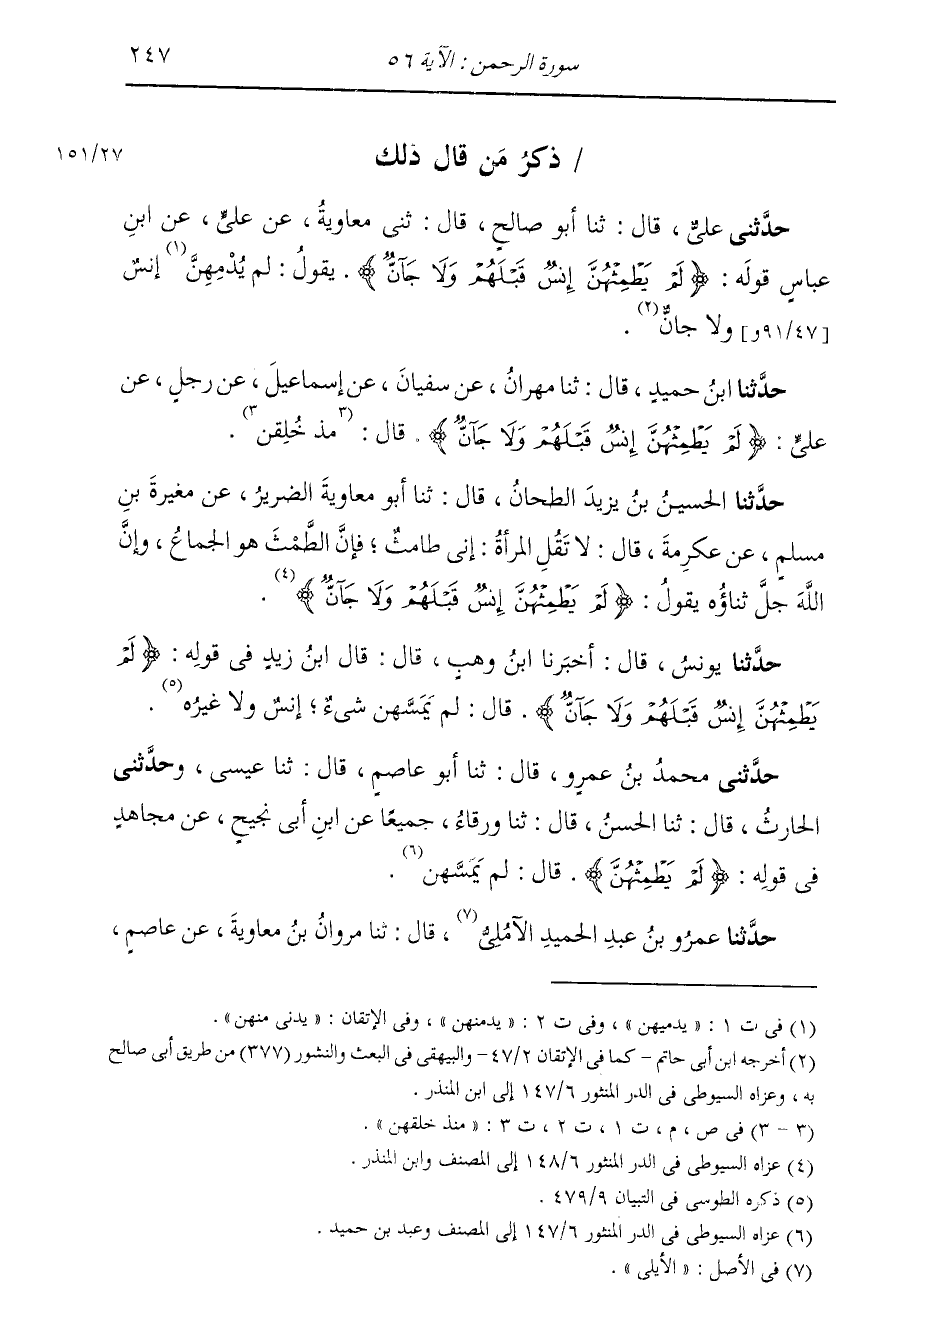 سورة الرحمن : الآية ٥٦
٢٤٧
/ ذكرُ مَن قال ذلك
١٥١/٢٧
حدَّثنى علىٌّ ، قال : ثنا أبو صالحٍ ، قال : ثنى معاويةُ ، عن علىٍّ ، عن ابنِ
عباسٍ قولَه : ﴿ لَمْ يَطْمِثْهُنَّ إِنسٌ قَبْلَهُمْ وَلَا جَآنٌّ ﴾ . يقولُ : لم يُدْمِهِنَّ(١) إنسٌ
[٩١/٤٧و] ولا جانٌّ(٢) .
حدَّثنا ابنُ حميدٍ ، قال : ثنا مهرانُ ، عن سفيانَ ، عن إسماعيلَ ، عن رجلٍ ، عن
علىٍّ : ﴿ لَمْ يَطْمِثْهُنَّ إِنسٌ قَبْلَهُمْ وَلَا جَآنٌّ ﴾ . قال : (٣ مذ خُلِقن ٣) .
حدَّثنا الحسينُ بنُ يزيدَ الطحانُ ، قال : ثنا أبو معاويةَ الضريرُ ، عن مغيرةَ بنِ
مسلمٍ ، عن عكرِمةَ ، قال : لا تَقُلِ المرأةُ : إنى طامثٌ ؛ فإنَّ الطَّمْثَ هو الجماعُ ، وإنَّ
اللَّهَ جلَّ ثناؤُه يقولُ : ﴿ لَمْ يَطْمِثْهُنَّ إِنسٌ قَبْلَهُمْ وَلَا جَآنٌّ ﴾(٤) .
حدَّثنا يونسُ ، قال : أخبَرنا ابنُ وهبٍ ، قال : قال ابنُ زيدٍ فى قولِه : ﴿ لَمْ
يَطْمِثْهُنَّ إِنسٌ قَبْلَهُمْ وَلَا جَآنٌّ ﴾ . قال : لم يَمَسَّهن شىءٌ ؛ إنسٌ ولا غيرُه(٥) .
حدَّثنى محمدُ بنُ عمرٍو ، قال : ثنا أبو عاصمٍ ، قال : ثنا عيسى ، وحدَّثنى
الحارثُ ، قال : ثنا الحسنُ ، قال : ثنا ورقاءُ ، جميعًا عن ابنِ أبى نجيحٍ ، عن مجاهدٍ
فى قولِه : ﴿ لَمْ يَطْمِثْهُنَّ ﴾ . قال : لم يَمَسَّهن(٦) .
حدَّثنا عمرُو بنُ عبدِ الحميدِ الآمُلِىُّ(٧) ، قال : ثنا مروانُ بنُ معاويةَ ، عن عاصمٍ ،
(١) فى ت ١ : « يدميهن » ، وفى ت ٢ : « يدمنهن » ، وفى الإتقان : « يدنى منهن » .
(٢) أخرجه ابن أبى حاتم – كما فى الإتقان ٤٧/٢ – والبيهقى فى البعث والنشور (٣٧٧) من طريق أبى صالح
به ، وعزاه السيوطى فى الدر المنثور ١٤٧/٦ إلى ابن المنذر .
(٣ – ٣) فى ص ، م ، ت ١ ، ت ٢ ، ت ٣ : « منذ خلقهن » .
(٤) عزاه السيوطى فى الدر المنثور ١٤٨/٦ إلى المصنف وابن المنذر .
(٥) ذكره الطوسى فى التبيان ٤٧٩/٩ .
(٦) عزاه السيوطى فى الدر المنثور ١٤٧/٦ إلى المصنف وعبد بن حميد .
(٧) فى الأصل : « الأيلى » .